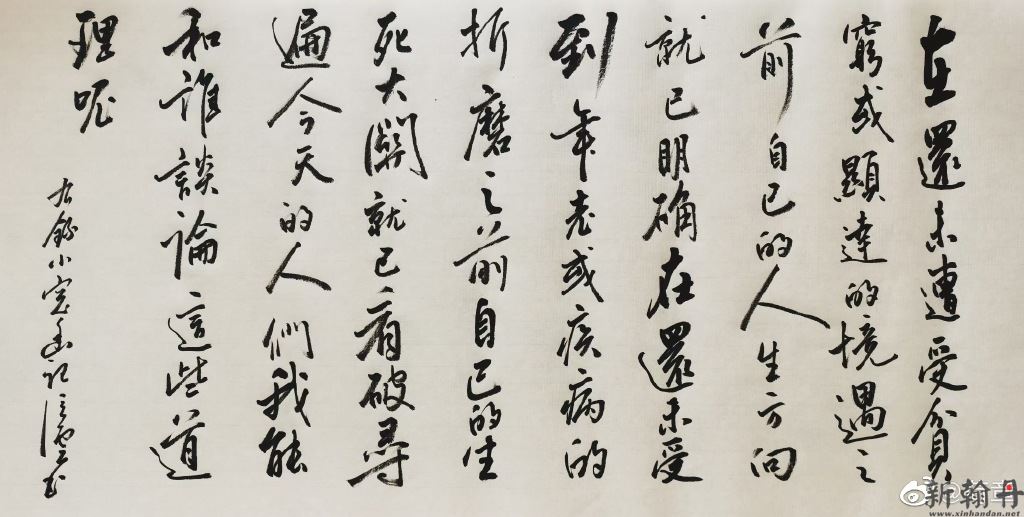 在還未遭受貧
窮或顯達的境遇之
前自己的人生方向
就已明确在還未受
到年老或疾病的
折磨之前自己的生
死大關就已看破尋
遍今天的人們我能
和誰談論這些道
理呢
右錄小窗幽記
新翰丹
www.xinhandan.net